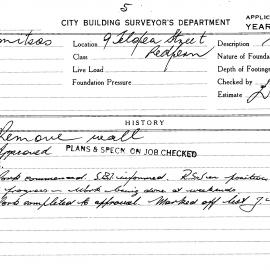 5
CITY BUILDING SURVEYOR'S DEPARTMENT APPLIC
YEAR
Location 9 Telopea Street Description
Class Redfern Nature of Founda
Live Load Depth of Footings
Foundation Pressure Checked by
Estimate £
HISTORY
Remove wall
Approved PLANS & SPECN ON JOB CHECKED
Work commenced. SBI informed. position
progress Work being done at weekends.
Work completed to approval. Marked off list